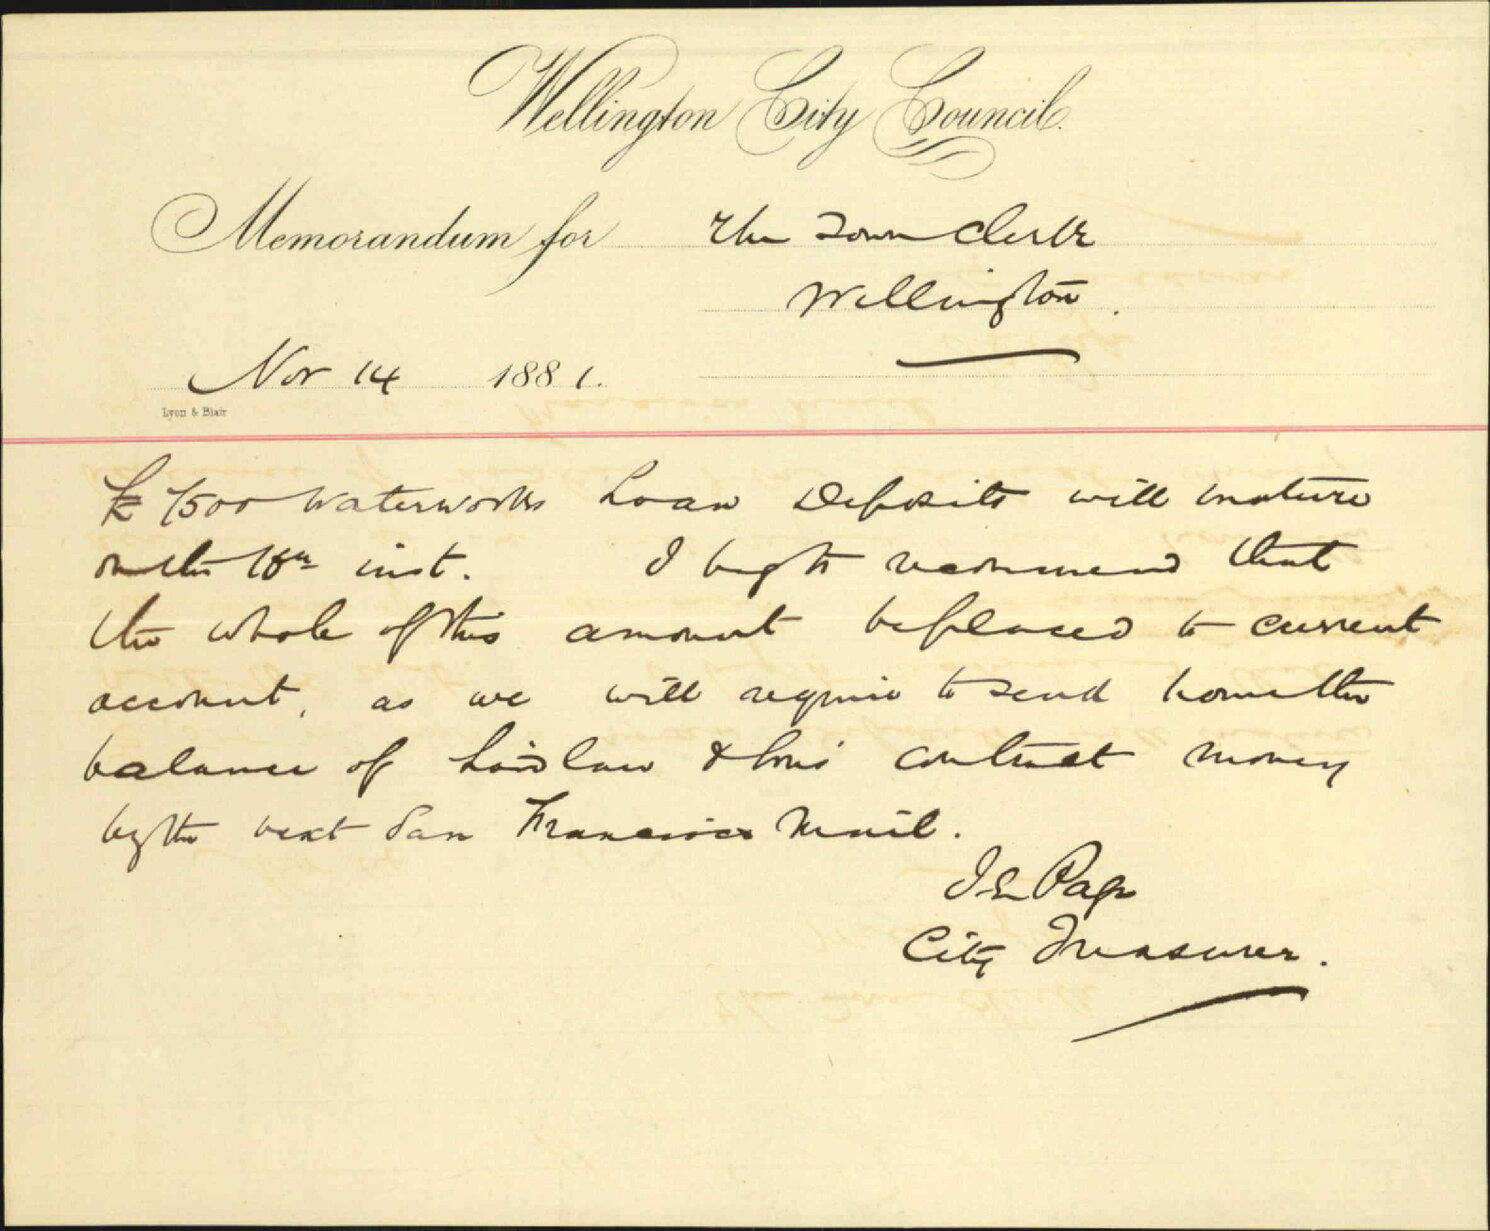 Wellington City Council.
Memorandum for The Town Clerk
Wellington.
Nov 14 1881.
Lyon & Blair
£7500 Waterworks Loan Deposits will mature
on the 18th inst. I beg to recommend that
the whole of this amount be placed to current
account, as we will require to send home the
balance of Laidlaw & Sons contract money
by the next San Francisco Mail.
J E Page
City Treasurer.